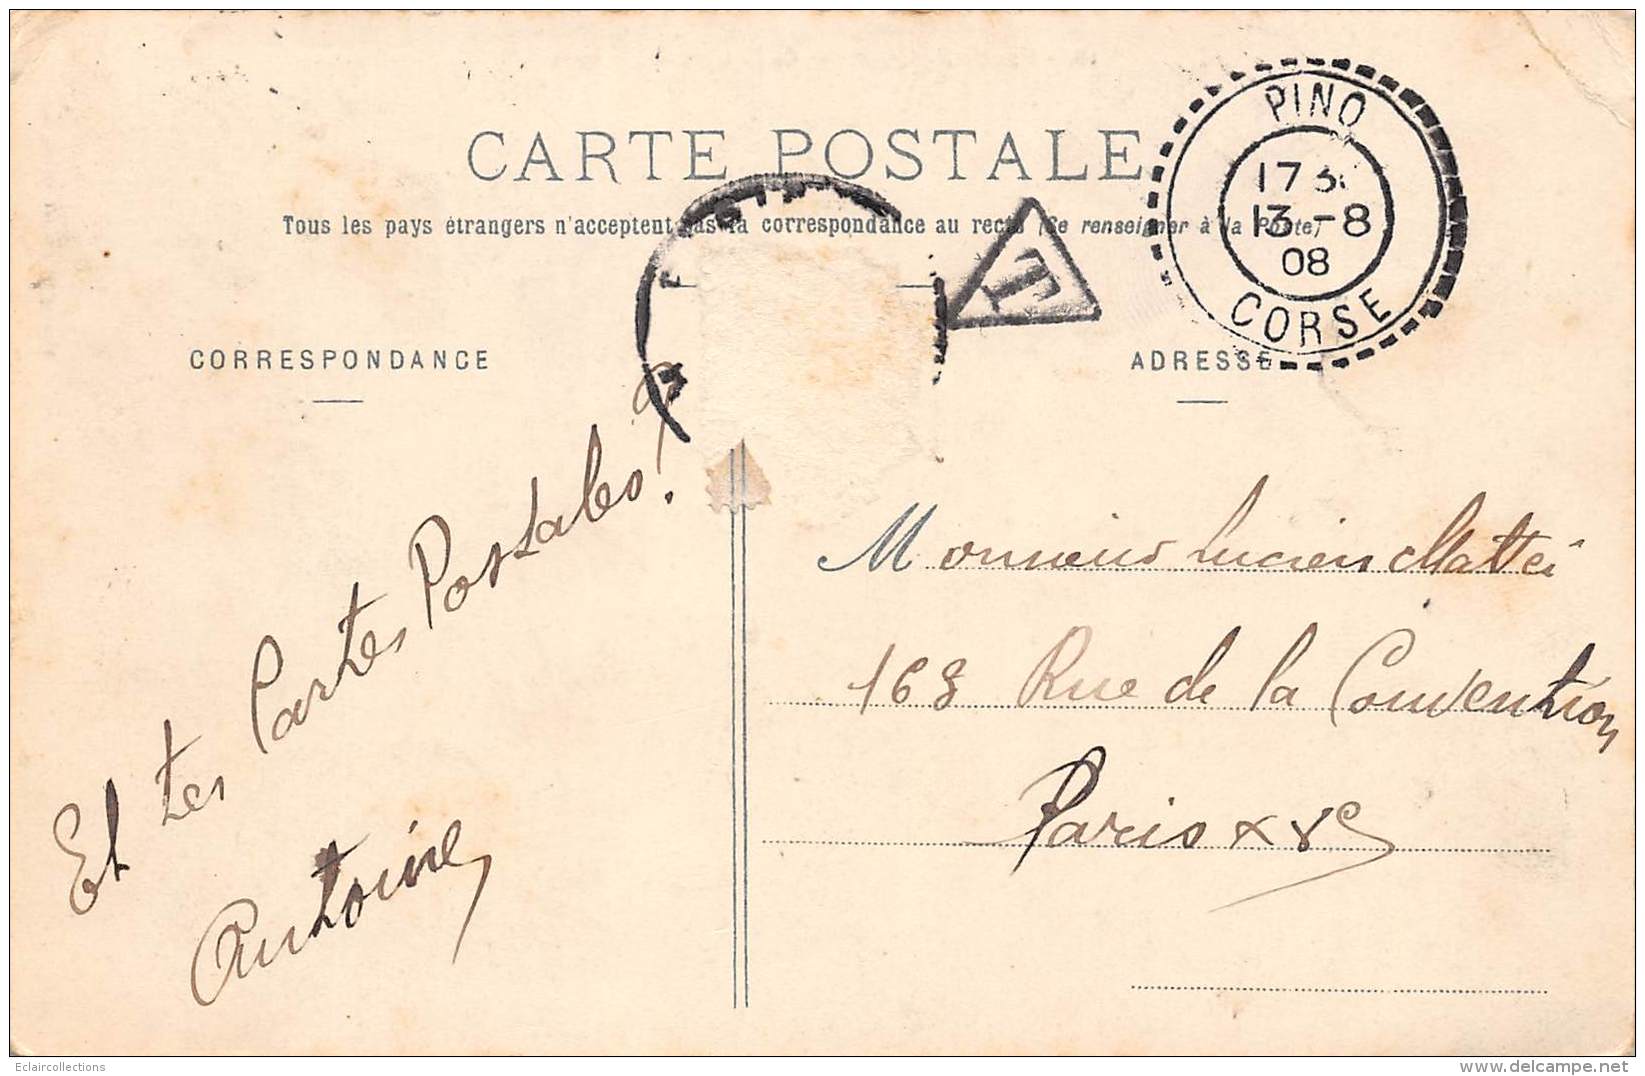 CARTE POSTALE
Tous les pays étrangers n'acceptent pas la correspondance au recto (Se renseigner à la Poste)
T
PINO
17 3
13 -8
08
CORSE
CORRESPONDANCE
ADRESSE
Et tes Cartes Postales ?
Antoine
Monsieur Lucien Mattei
168 Rue de la Convention
Paris XVe
Eclaircollections
www.delcampe.net